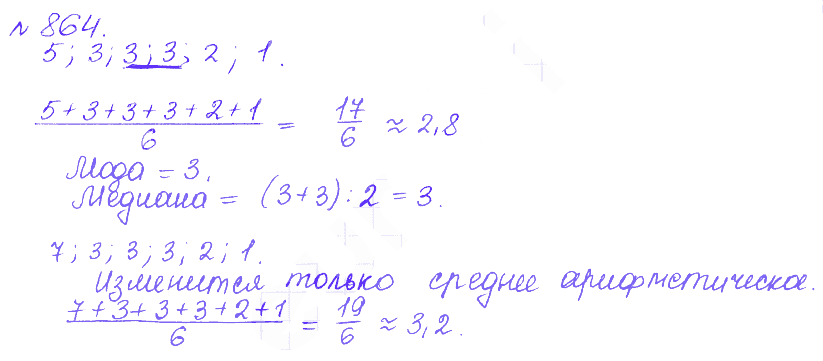 № 864.
5; 3; 3; 3; 2; 1.
(5+3+3+3+2+1)/6 = 17/6 ≈ 2,8
Мода = 3.
Медиана = (3+3):2 = 3.
7; 3; 3; 3; 2; 1.
Изменится только среднее арифметическое.
(7+3+3+3+2+1)/6 = 19/6 ≈ 3,2.